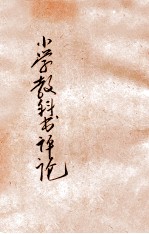 小学教科书评论